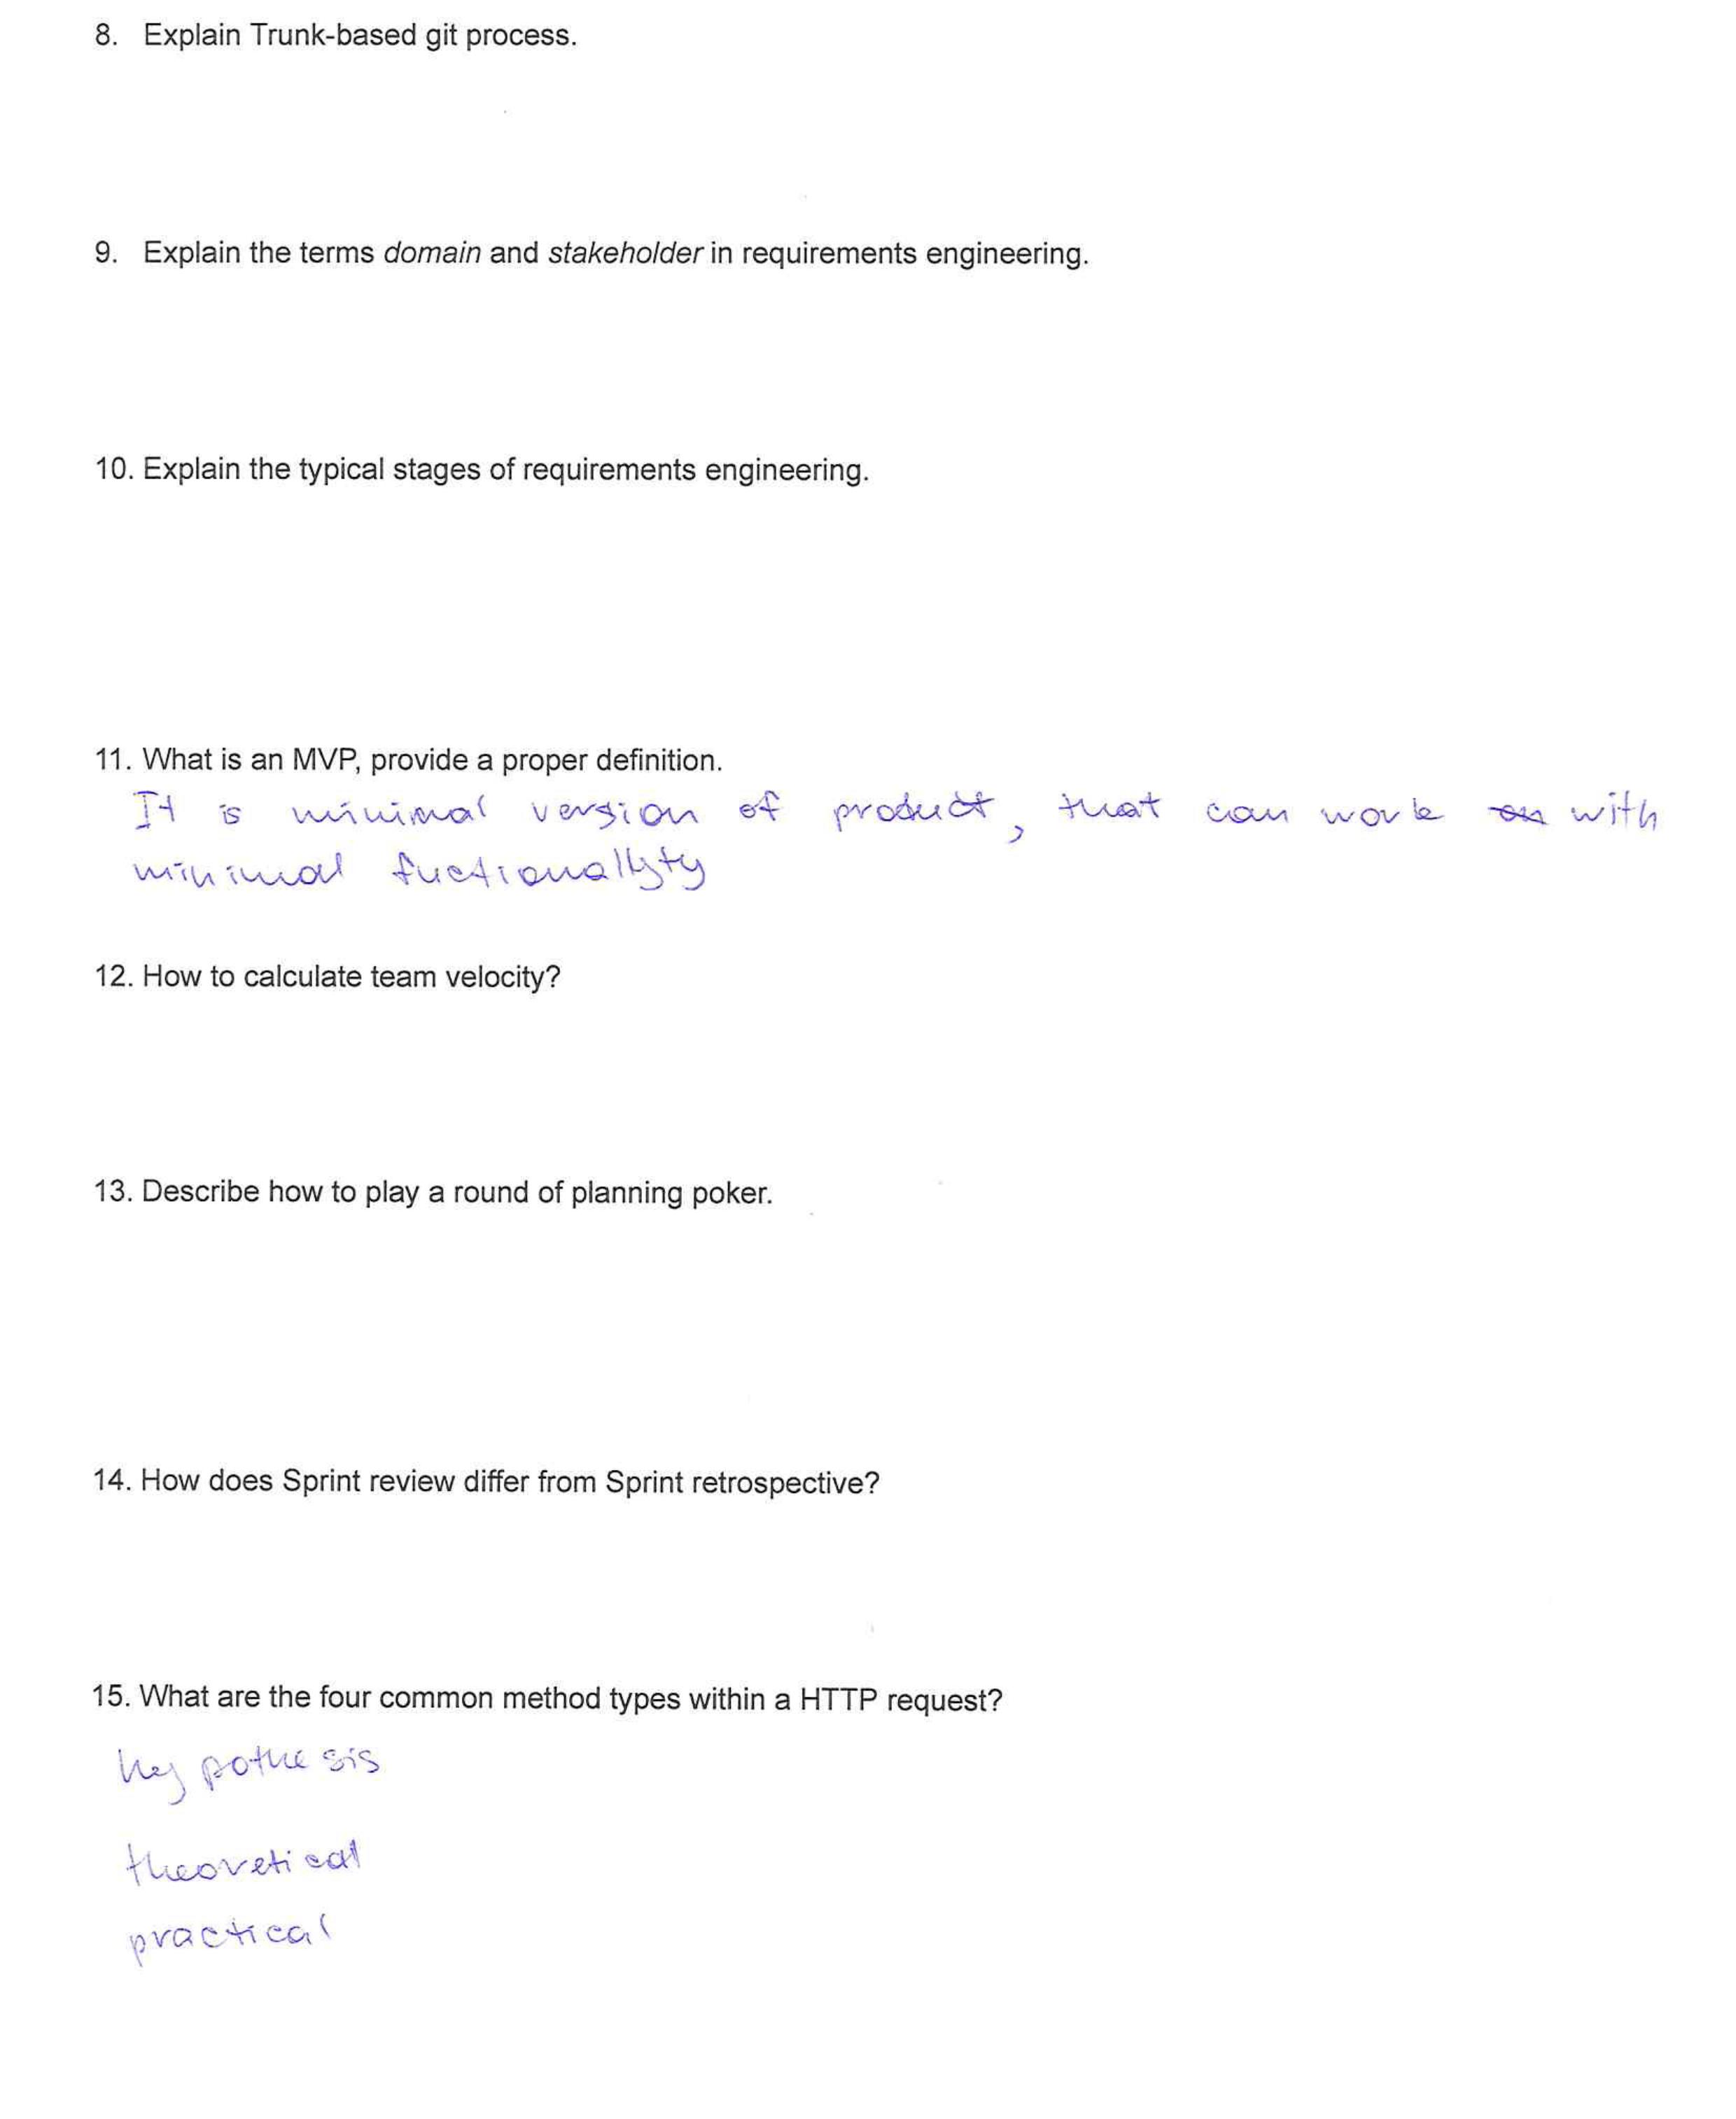 8. Explain Trunk-based git process.
9. Explain the terms domain and stakeholder in requirements engineering.
10. Explain the typical stages of requirements engineering.
11. What is an MVP, provide a proper definition.
It is minimal version of product, that can work on with
minimal fuctionallyty
12. How to calculate team velocity?
13. Describe how to play a round of planning poker.
14. How does Sprint review differ from Sprint retrospective?
15. What are the four common method types within a HTTP request?
hypothesis
theoretical
practical